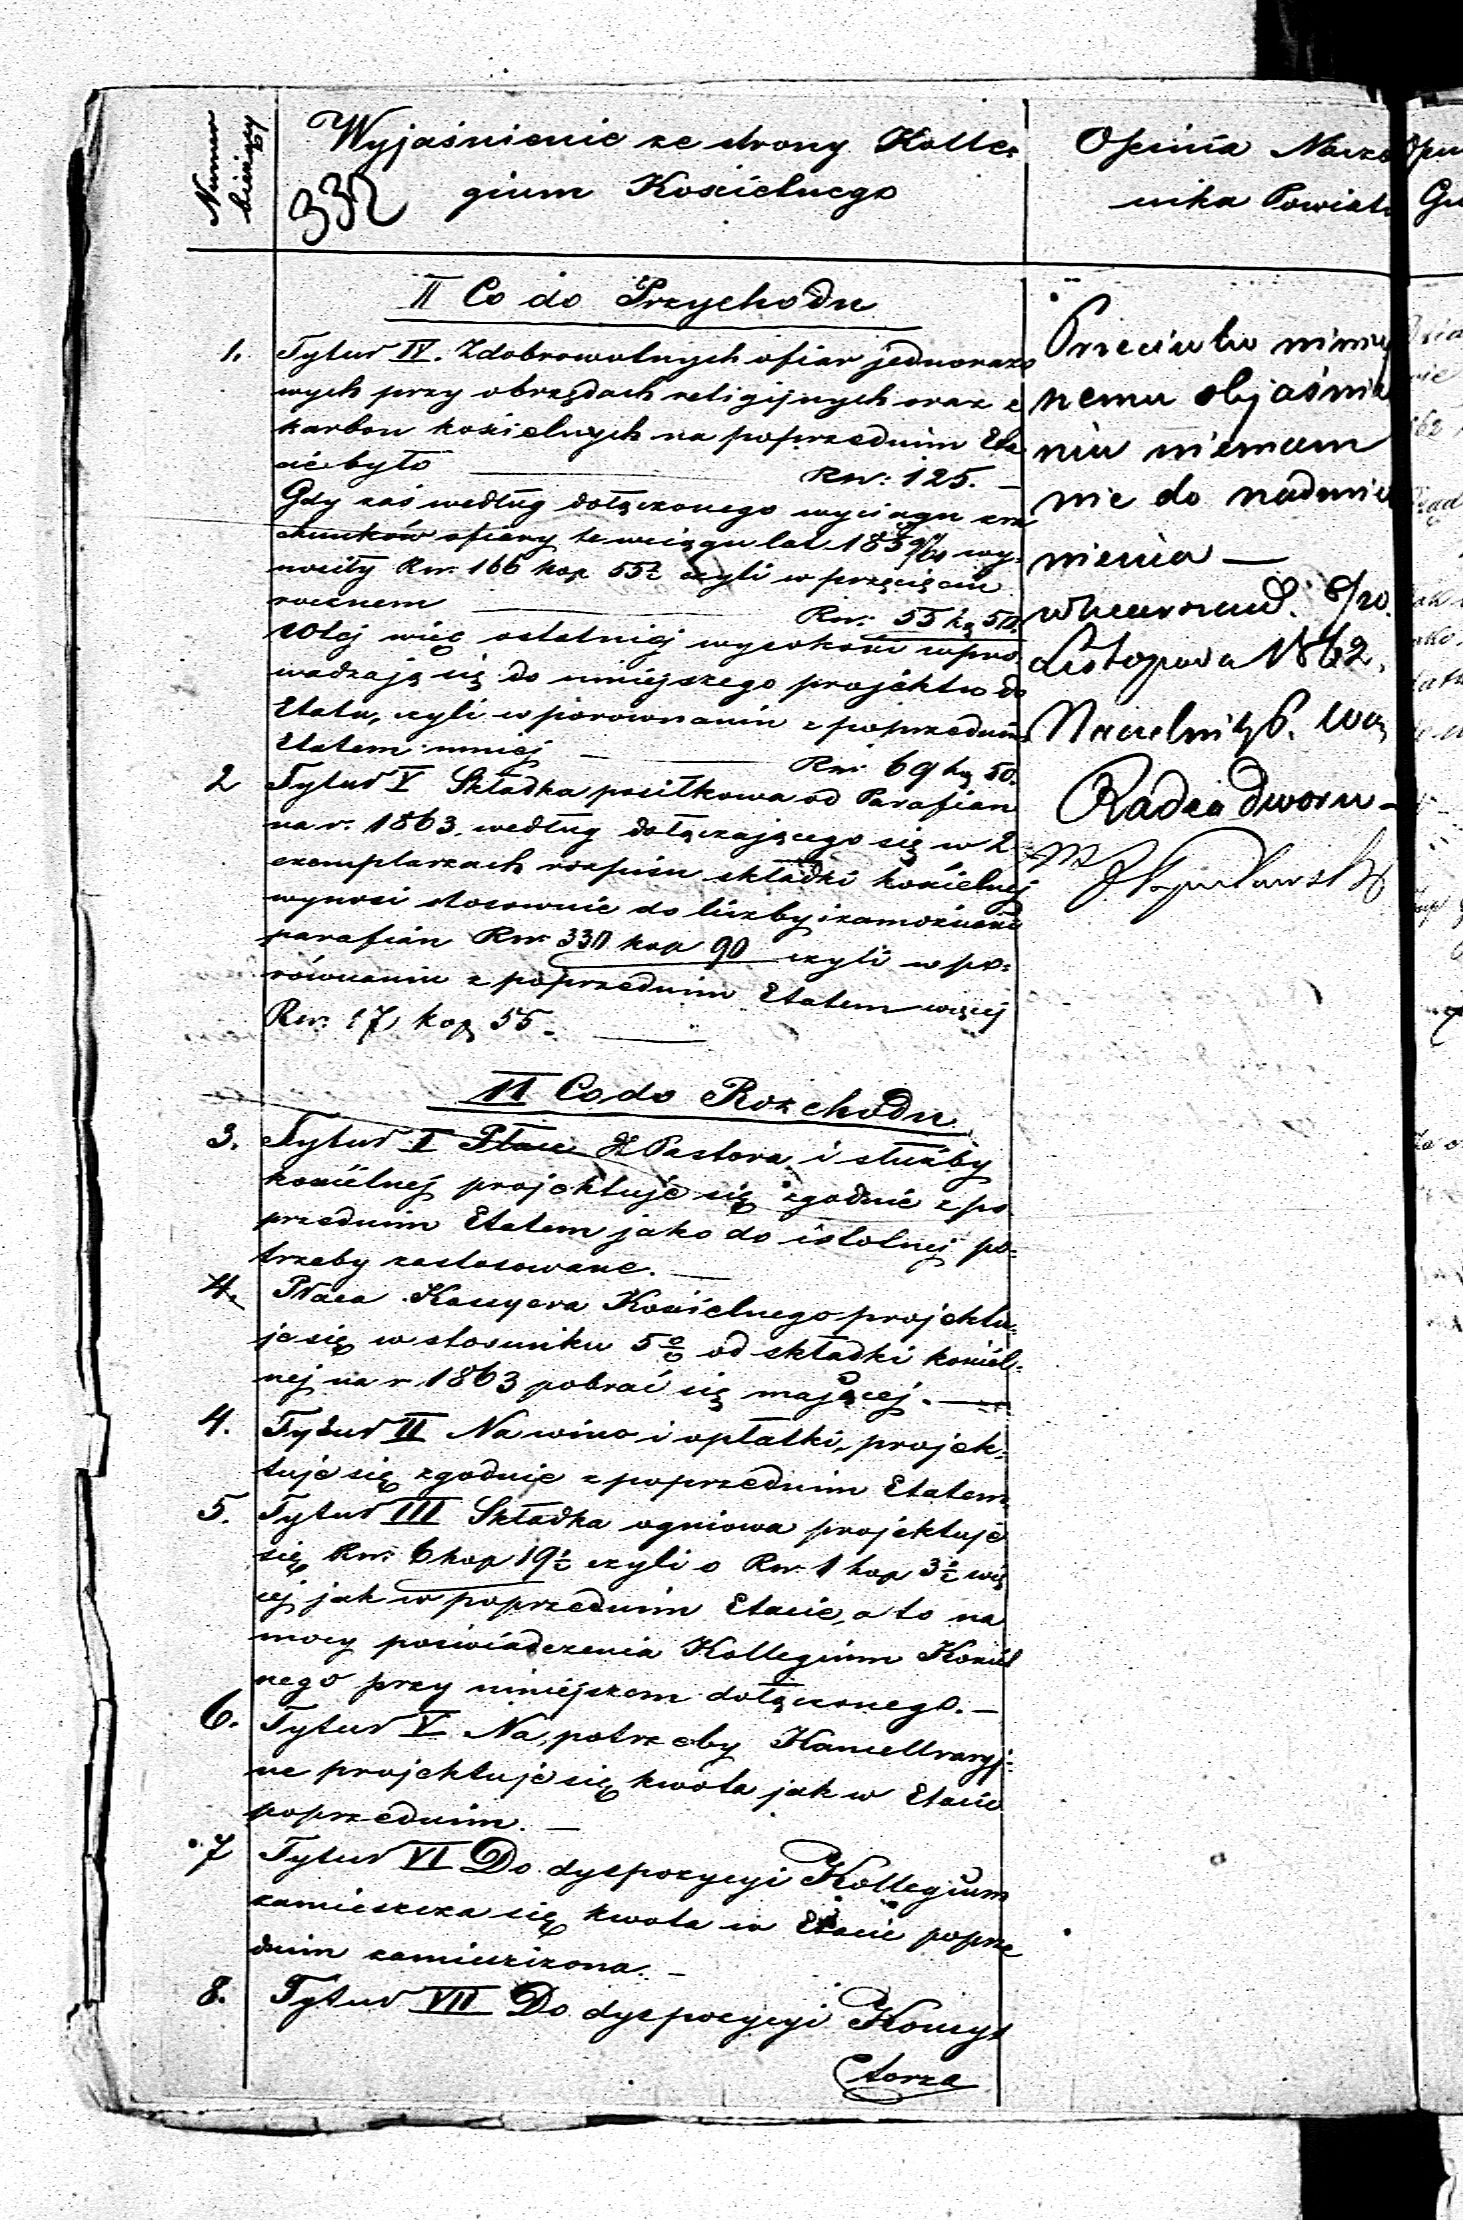 Numer
bieżący
Wyjaśnienie ze strony Kolle-
gium Kościelnego
332
Opinia Nacze
nika Powiatu
II Co do Przychodu
1. Tytuł IV. Z dobrowolnych ofiar jednorazo
wych przy obrzędach religijnych oraz z
karbon kościelnych na poprzednim Eta
cie było Rsr: 125. —
Gdy zaś według dołączonego wyciągu z ra
chunków ofiary te w ciągu lat wy-
nosiły Rsr. 166 kop 55½ czyli w przecięciu
rocznem Rsr: 55 kp 50.
w tej więc ostatniej wysokości wpro
wadzają się do niniejszego projektu do
Etatu, czyli w porównaniu z poprzednim
Etatem mniej — Rsr 69 kp 50.
2 Tytuł V Składka posiłkowa od Parafian
na r. 1863. według dołączającego się w 2
exemplarzach rozpisu składki kościelnej
wynosi stosownie do liczby i zamożności
parafian Rsr 330 kop 90 czyli w po-
równaniu z poprzednim Etatem więcej
Rsr: 17 kop 55. —
II Co do Rozchodu
3. Tytuł I Płace X Pastora i służby
kościelnej projektuje się zgodnie z po
przednim Etatem jako do istotnej po-
trzeby zastosowane. —
4. Płaca Kassyera Kościelnego projektu-
je się w stosunku 5% od składki kościel-
nej na r 1863 pobrać się mającej. —
4. Tytuł II Na wino i opłatki, projek-
tuje się zgodnie z poprzednim Etatem
5. Tytuł III Składka ogniowa projektuje
się Rsr: 6 kop 19½ czyli o Rsr. 1 kop 3½ wię
cej jak w poprzednim Etacie, a to na
mocy poświadczenia Kollegium Kościel
nego przy niniejszem dołączonego. —
6. Tytuł V Na potrzeby Kancellaryj-
ne projektuje się kwota jak w Etacie
poprzednim. —
7 Tytuł VI Do dyspozycyi Kollegium
zamieszcza się kwota w Etacie poprze
dnim zamieszczona. —
8. Tytuł VII Do dyspozycyi Konsys
torza
Przeciwko niniej
nemu objaśnie
niu niemam
nic do nadmie
nienia —
8/20.
Listopada 1862.
Naczelnik P.
Radca Dworu —